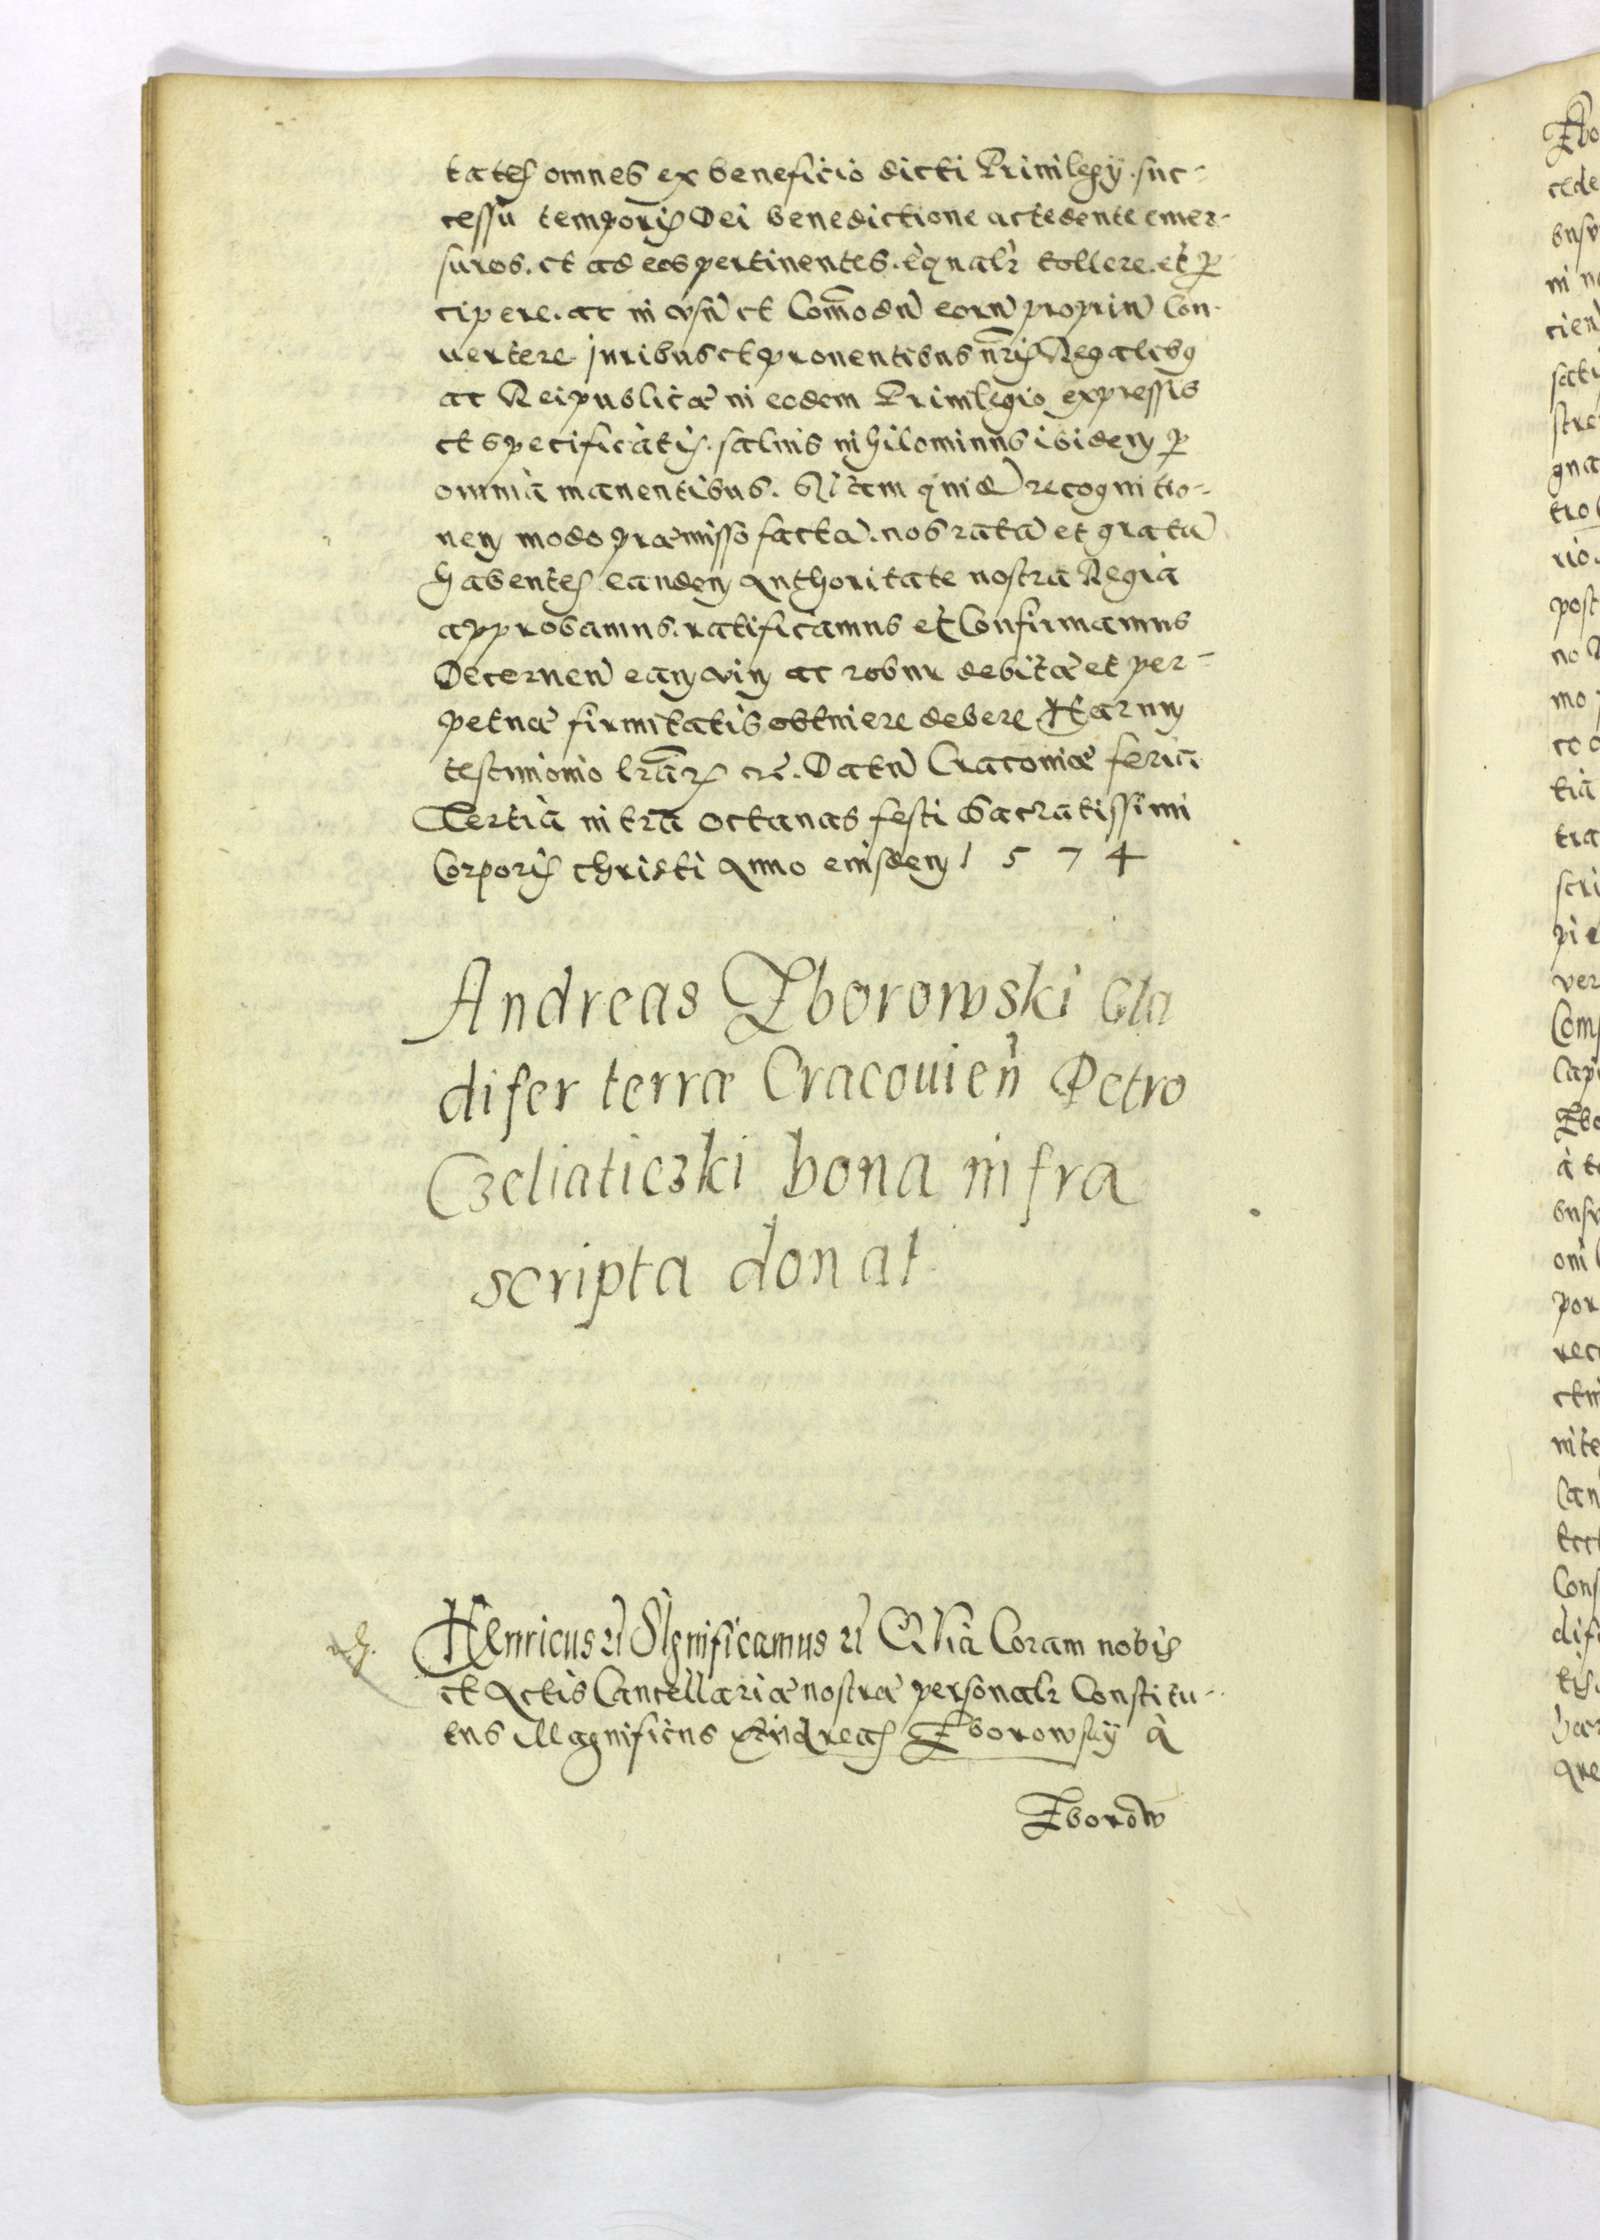 tates omnes ex beneficio dicti Priuilegij. suc-
cessu temporis Dei benedictione accedente emer-
suros. et ad eos pertinentes. equalr tollere. et p
cipere. ac in vsu et Comodu eoru propriu Con-
uertere juribus et prouentibus nris Regalibq
ac Reipublicæ in eodem Priuilegio expressis
et specificatis. saluis nihilominus ibidem p
omnia manentibus. Nam quid recognitio-
nem modo præmisso facta. nos rata et grata
habentes eandem Authoritate nostra Regia
approbamus. ratificamus et Confirmamus
Decernen eam vim ac robur debitæ et per-
petuæ firmitatis obtinere debere Harum
testimonio lrar etc. Datu Cracouiæ feria
Tertia intra octauas festi Sacratissimi
Corporis christi Anno eiusdem 1574
Andreas Zborowski Gla
difer terræ Cracouien Petro
Czeliaticzki bona infra
scripta donat
Henricus etc Significamus etc Quia Coram nobis
et Actis Cancellariæ nostræ personalr Constitu-
tus Magnificus Andreas Zborowsky à
Zborow
Zbo
cede